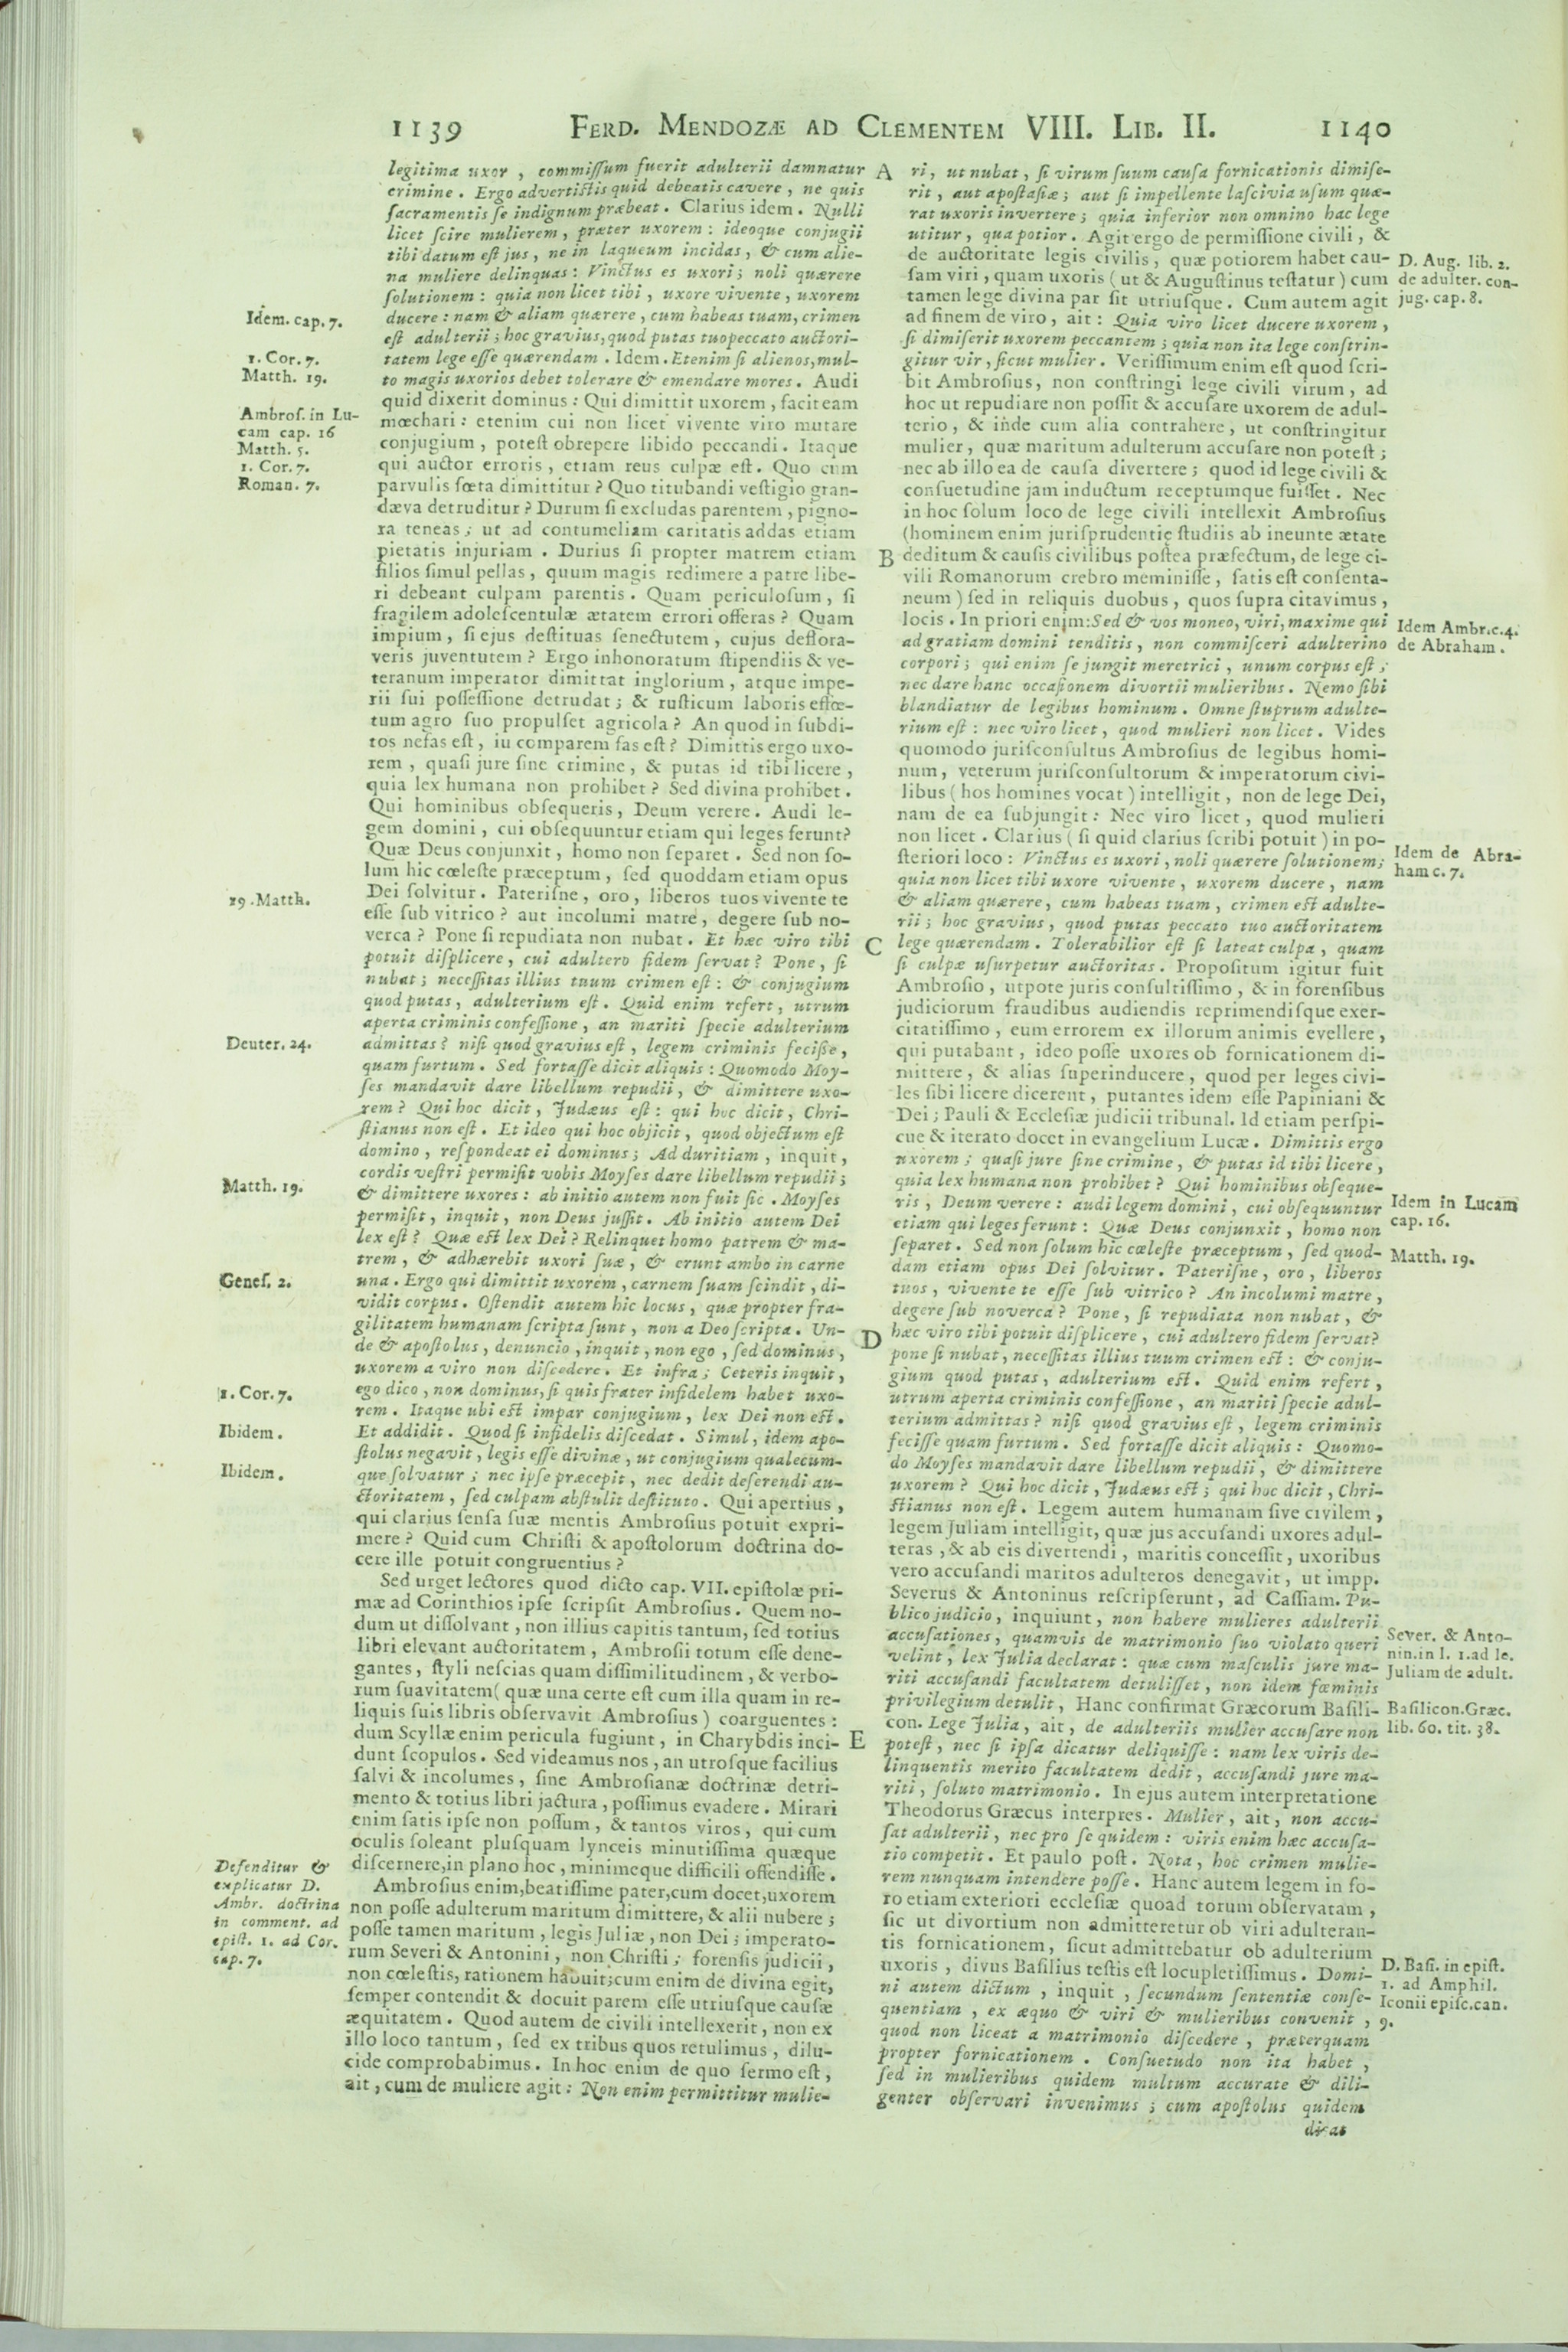 1139 FERD. MENDOZÆ AD CLEMENTEM VIII. LIB. II. 1140
legitima uxor, commiſſum fuerit adulterii damnatur
crimine. Ergo advertiſtis quid debeatis cavere, ne quis
ſacramentis ſe indignum præbeat. Clarius idem. Nulli
licet ſcire mulierem, præter uxorem: ideoque conjugii
tibi datum eſt jus, ne in laqueum incidas, & cum alie-
na muliere delinquas: Vinctus es uxori; noli quærere
ſolutionem: quia non licet tibi, uxore vivente, uxorem
ducere: nam & aliam quærere, cum habeas tuam, crimen
eſt adulterii; hoc gravius, quod putas tuo peccato auctori-
tatem lege eſſe quærendam. Idem. Etenim ſi alienos, mul-
to magis uxorios debet tolerare & emendare mores. Audi
quid dixerit dominus: Qui dimittit uxorem, facit eam
mœchari: etenim cui non licet vivente viro mutare
conjugium, poteſt obrepere libido peccandi. Itaque
qui auctor erroris, etiam reus culpæ eſt. Quo cum
parvulis fœta dimittitur? Quo titubandi veſtigio gran-
dæva detruditur? Durum ſi excludas parentem, pigno-
ra teneas; ut ad contumeliam caritatis addas etiam
pietatis injuriam. Durius ſi propter matrem etiam
filios ſimul pellas, quum magis redimere a patre libe-
ri debeant culpam parentis. Quam periculoſum, ſi
fragilem adoleſcentulæ ætatem errori offeras? Quam
impium, ſi ejus deſtituas ſenectutem, cujus deflora-
veris juventutem? Ergo inhonoratum ſtipendiis & ve-
teranum imperator dimittat inglorium, atque impe-
rii ſui poſſeſſione detrudat; & ruſticum laboris effœ-
tum agro ſuo propulſet agricola? An quod in ſubdi-
tos nefas eſt, iu comparem fas eſt? Dimittis ergo uxo-
rem, quaſi jure ſine crimine, & putas id tibi licere,
quia lex humana non prohibet? Sed divina prohibet.
Qui hominibus obſequeris, Deum verere. Audi le-
gem domini, cui obſequuntur etiam qui leges ferunt?
Quæ Deus conjunxit, homo non ſeparet. Sed non ſo-
lum hic cœleſte præceptum, ſed quoddam etiam opus
Dei ſolvitur. Pateriſne, oro, liberos tuos vivente te
eſſe ſub vitrico? aut incolumi matre, degere ſub no-
verca? Pone ſi repudiata non nubat. Et hæc viro tibi
potuit diſplicere, cui adultero fidem ſervat? Pone, ſi
nubat; neceſſitas illius tuum crimen eſt: & conjugium
quod putas, adulterium eſt. Quid enim refert, utrum
aperta criminis confeſſione, an mariti ſpecie adulterium
admittas? niſi quod gravius eſt, legem criminis feciſſe,
quam furtum. Sed fortaſſe dicit aliquis: Quomodo Moy-
ſes mandavit dare libellum repudii, & dimittere uxo-
rem? Qui hoc dicit, Judæus eſt: qui hoc dicit, Chri-
ſtianus non eſt. Et ideo qui hoc objicit, quod objectum eſt
domino, reſpondeat ei dominus; Ad duritiam, inquit,
cordis veſtri permiſit vobis Moyſes dare libellum repudii;
& dimittere uxores: ab initio autem non fuit ſic. Moyſes
permiſit, inquit, non Deus juſſit. Ab initio autem Dei
lex eſt? Quæ eſt lex Dei? Relinquet homo patrem & ma-
trem, & adhærebit uxori ſuæ, & erunt ambo in carne
una. Ergo qui dimittit uxorem, carnem ſuam ſcindit, di-
vidit corpus. Oſtendit autem hic locus, quæ propter fra-
gilitatem humanam ſcripta ſunt, non a Deo ſcripta. Un-
de & apoſtolus, denuncio, inquit, non ego, ſed dominus,
uxorem a viro non diſcedere. Et infra; Ceteris inquit,
ego dico, non dominus, ſi quis frater infidelem habet uxo-
rem. Itaque ubi eſt impar conjugium, lex Dei non eſt.
Et addidit. Quod ſi infidelis diſcedat. Simul, idem apo-
ſtolus negavit, legis eſſe divinæ, ut conjugium qualecum-
que ſolvatur; nec ipſe præcepit, nec dedit deferendi au-
ctoritatem, ſed culpam abſtulit deſtituto. Qui apertius,
qui clarius ſenſa ſuæ mentis Ambroſius potuit expri-
mere? Quid cum Chriſti & apoſtolorum doctrina do-
cere ille potuit congruentius?
Sed urget lectores quod dicto cap. VII. epiſtolæ pri-
mæ ad Corinthios ipſe ſcripſit Ambroſius. Quem no-
dum ut diſſolvant, non illius capitis tantum, ſed totius
libri elevant auctoritatem, Ambroſii totum eſſe dene-
gantes, ſtyli neſcias quam diſſimilitudinem, & verbo-
rum ſuavitatem (quæ una certe eſt cum illa quam in re-
liquis ſuis libris obſervavit Ambroſius) coarguentes:
dum Scyllæ enim pericula fugiunt, in Charybdis inci-
dunt ſcopulos. Sed videamus nos, an utroſque facilius
ſalvi & incolumes, ſine Ambroſianæ doctrinæ detri-
mento & totius libri jactura, poſſimus evadere. Mirari
enim ſatis ipſe non poſſum, & tantos viros, qui cum
oculis ſoleant pluſquam lynceis minutiſſima quæque
diſcernere, in plano hoc, minimeque difficili offendiſſe.
Ambroſius enim, beatiſſime pater, cum docet, uxorem
non poſſe adulterum maritum dimittere, & alii nubere;
poſſe tamen maritum, legis Juliæ, non Dei; imperato-
rum Severi & Antonini, non Chriſti; forenſis judicii,
non cœleſtis, rationem habuit; cum enim de divina egit,
ſemper contendit & docuit parem eſſe utriuſque cauſæ
æquitatem. Quod autem de civili intellexerit, non ex
illo loco tantum, ſed ex tribus quos retulimus, dilu-
cide comprobabimus. In hoc enim de quo ſermo eſt,
ait, cum de muliere agit: Non enim permittitur mulie-
Idem. cap. 7.
1. Cor. 7.
Matth. 19.
Ambroſ. in Lu-
cam cap. 16
Matth. 5.
1. Cor. 7.
Roman. 7.
19. Matth.
Deuter. 24.
Matth. 19.
Geneſ. 2.
1. Cor. 7.
Ibidem.
Ibidem.
Defenditur &
explicatur D.
Ambr. doctrina
in comment. ad
epiſt. 1. ad Cor.
cap. 7.
A
B
C
D
E
ri, ut nubat, ſi virum ſuum cauſa fornicationis dimiſe-
rit, aut apoſtaſiæ; aut ſi impellente laſcivia uſum quæ-
rat uxoris invertere; quia inferior non omnino hac lege
utitur, qua potior. Agit ergo de permiſſione civili, &
de auctoritate legis civilis, quæ potiorem habet cau-
ſam viri, quam uxoris (ut & Auguſtinus teſtatur) cum
tamen lege divina par ſit utriuſque. Cum autem agit
ad finem de viro, ait: Quia viro licet ducere uxorem,
ſi dimiſerit uxorem peccantem; quia non ita lege conſtrin-
gitur vir, ſicut mulier. Veriſſimum enim eſt quod ſcri-
bit Ambroſius, non conſtringi lege civili virum, ad
hoc ut repudiare non poſſit & accuſare uxorem de adul-
terio, & inde cum alia contrahere, ut conſtringitur
mulier, quæ maritum adulterum accuſare non poteſt;
nec ab illo ea de cauſa divertere; quod id lege civili &
conſuetudine jam inductum receptumque fuiſſet. Nec
in hoc ſolum loco de lege civili intellexit Ambroſius
(hominem enim juriſprudentię ſtudiis ab ineunte ætate
deditum & cauſis civilibus poſtea præfectum, de lege ci-
vili Romanorum crebro meminiſſe, ſatis eſt conſenta-
neum) ſed in reliquis duobus, quos ſupra citavimus,
locis. In priori enim: Sed & vos moneo, viri, maxime qui
ad gratiam domini tenditis, non commiſceri adulterino
corpori; qui enim ſe jungit meretrici, unum corpus eſt;
nec dare hanc occaſionem divortii mulieribus. Nemo ſibi
blandiatur de legibus hominum. Omne ſtuprum adulte-
rium eſt: nec viro licet, quod mulieri non licet. Vides
quomodo juriſconſultus Ambroſius de legibus homi-
num, veterum juriſconſultorum & imperatorum civi-
libus (hos homines vocat) intelligit, non de lege Dei,
nam de ea ſubjungit: Nec viro licet, quod mulieri
non licet. Clarius (ſi quid clarius ſcribi potuit) in po-
ſteriori loco: Vinctus es uxori, noli quærere ſolutionem;
quia non licet tibi uxore vivente, uxorem ducere, nam
& aliam quærere, cum habeas tuam, crimen eſt adulte-
rii; hoc gravius, quod putas peccato tuo auctoritatem
lege quærendam. Tolerabilior eſt ſi lateat culpa, quam
ſi culpæ uſurpetur auctoritas. Propoſitum igitur fuit
Ambroſio, utpote juris conſultiſſimo, & in forenſibus
judiciorum fraudibus audiendis reprimendiſque exer-
citatiſſimo, eum errorem ex illorum animis evellere,
qui putabant, ideo poſſe uxores ob fornicationem di-
mittere, & alias ſuperinducere, quod per leges civi-
les ſibi licere dicerent, putantes idem eſſe Papiniani &
Dei; Pauli & Eccleſiæ judicii tribunal. Id etiam perſpi-
cue & iterato docet in evangelium Lucæ. Dimittis ergo
uxorem; quaſi jure ſine crimine, & putas id tibi licere,
quia lex humana non prohibet? Qui hominibus obſeque-
ris, Deum verere: audi legem domini, cui obſequuntur
etiam qui leges ferunt: Quæ Deus conjunxit, homo non
ſeparet. Sed non ſolum hic cœleſte præceptum, ſed quod-
dam etiam opus Dei ſolvitur. Pateriſne, oro, liberos
tuos, vivente te eſſe ſub vitrico? An incolumi matre,
degere ſub noverca? Pone, ſi repudiata non nubat, &
hæc viro tibi potuit diſplicere, cui adultero fidem ſervat?
pone ſi nubat, neceſſitas illius tuum crimen eſt: & conju-
gium quod putas, adulterium eſt. Quid enim refert,
utrum aperta criminis confeſſione, an mariti ſpecie adul-
terium admittas? niſi quod gravius eſt, legem criminis
feciſſe quam furtum. Sed fortaſſe dicit aliquis: Quomo-
do Moyſes mandavit dare libellum repudii, & dimittere
uxorem? Qui hoc dicit, Judæus eſt; qui hoc dicit, Chri-
ſtianus non eſt. Legem autem humanam ſive civilem,
legem Juliam intelligit, quæ jus accuſandi uxores adul-
teras, & ab eis divertendi, maritis conceſſit, uxoribus
vero accuſandi maritos adulteros denegavit, ut impp.
Severus & Antoninus reſcripſerunt, ad Caſſiam. Pu-
blico judicio, inquiunt, non habere mulieres adulterii
accuſationes, quamvis de matrimonio ſuo violato queri
velint, lex Julia declarat: quæ cum maſculis jure ma-
riti accuſandi facultatem detuliſſet, non idem fœminis
privilegium detulit, Hanc confirmat Græcorum Baſili-
con. Lege Julia, ait, de adulteriis mulier accuſare non
poteſt, nec ſi ipſa dicatur deliquiſſe: nam lex viris de-
linquentis merito facultatem dedit, accuſandi jure ma-
riti, ſoluto matrimonio. In ejus autem interpretatione
Theodorus Græcus interpres. Mulier, ait, non accu-
ſat adulterii, nec pro ſe quidem: viris enim hæc accuſa-
tio competit. Et paulo poſt. Nota, hoc crimen mulie-
rem nunquam intendere poſſe. Hanc autem legem in fo-
ro etiam exteriori eccleſiæ quoad torum obſervatam,
ſic ut divortium non admitteretur ob viri adulteran-
tis fornicationem, ſicut admittebatur ob adulterium
uxoris, divus Baſilius teſtis eſt locupletiſſimus. Domi-
ni autem dictum, inquit, ſecundum ſententiæ conſe-
quentiam, ex æquo & viri & mulieribus convenit,
quod non liceat a matrimonio diſcedere, præterquam
propter fornicationem. Conſuetudo non ita habet,
ſed in mulieribus quidem multum accurate & dili-
genter obſervari invenimus; cum apoſtolus quidem
dicat
D. Aug. lib. 2.
de adulter. con-
jug. cap. 8.
Idem Ambr. c. 4.
de Abraham.
Idem de Abra-
ham c. 7.
Idem in Lucam
cap. 16.
Matth. 19.
Sever. & Anto-
nin. in l. 1. ad le.
Juliam de adult.
Baſilicon. Græc.
lib. 60. tit. 38.
D. Baſi. in epiſt.
1. ad Amphil.
Iconii epiſc. can.
9.